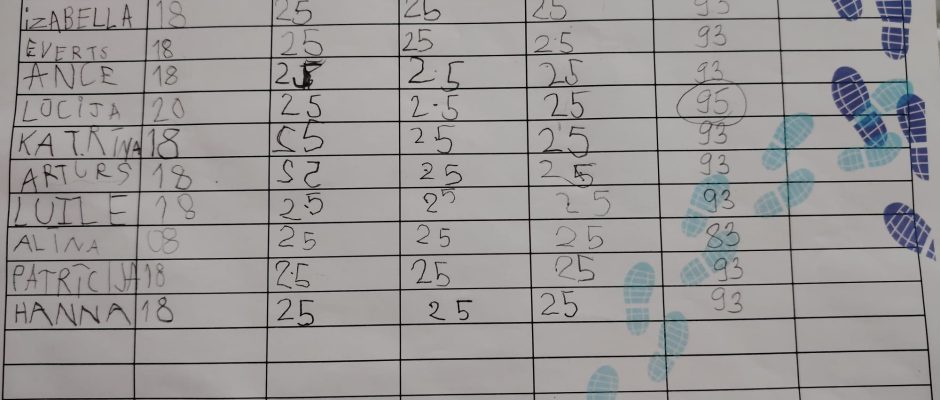 IZABELLA 18 25 25 25 93
EVERTS 18 25 25 25 93
ANCE 18 25 25 25 93
LŪCIJA 20 25 25 25 95
KATRĪNA 18 25 25 25 93
ARTURS 18 25 25 25 93
LUILE 18 25 25 25 93
ALĪNA 08 25 25 25 83
PATRĪCIJA 18 25 25 25 93
HANNA 18 25 25 25 93